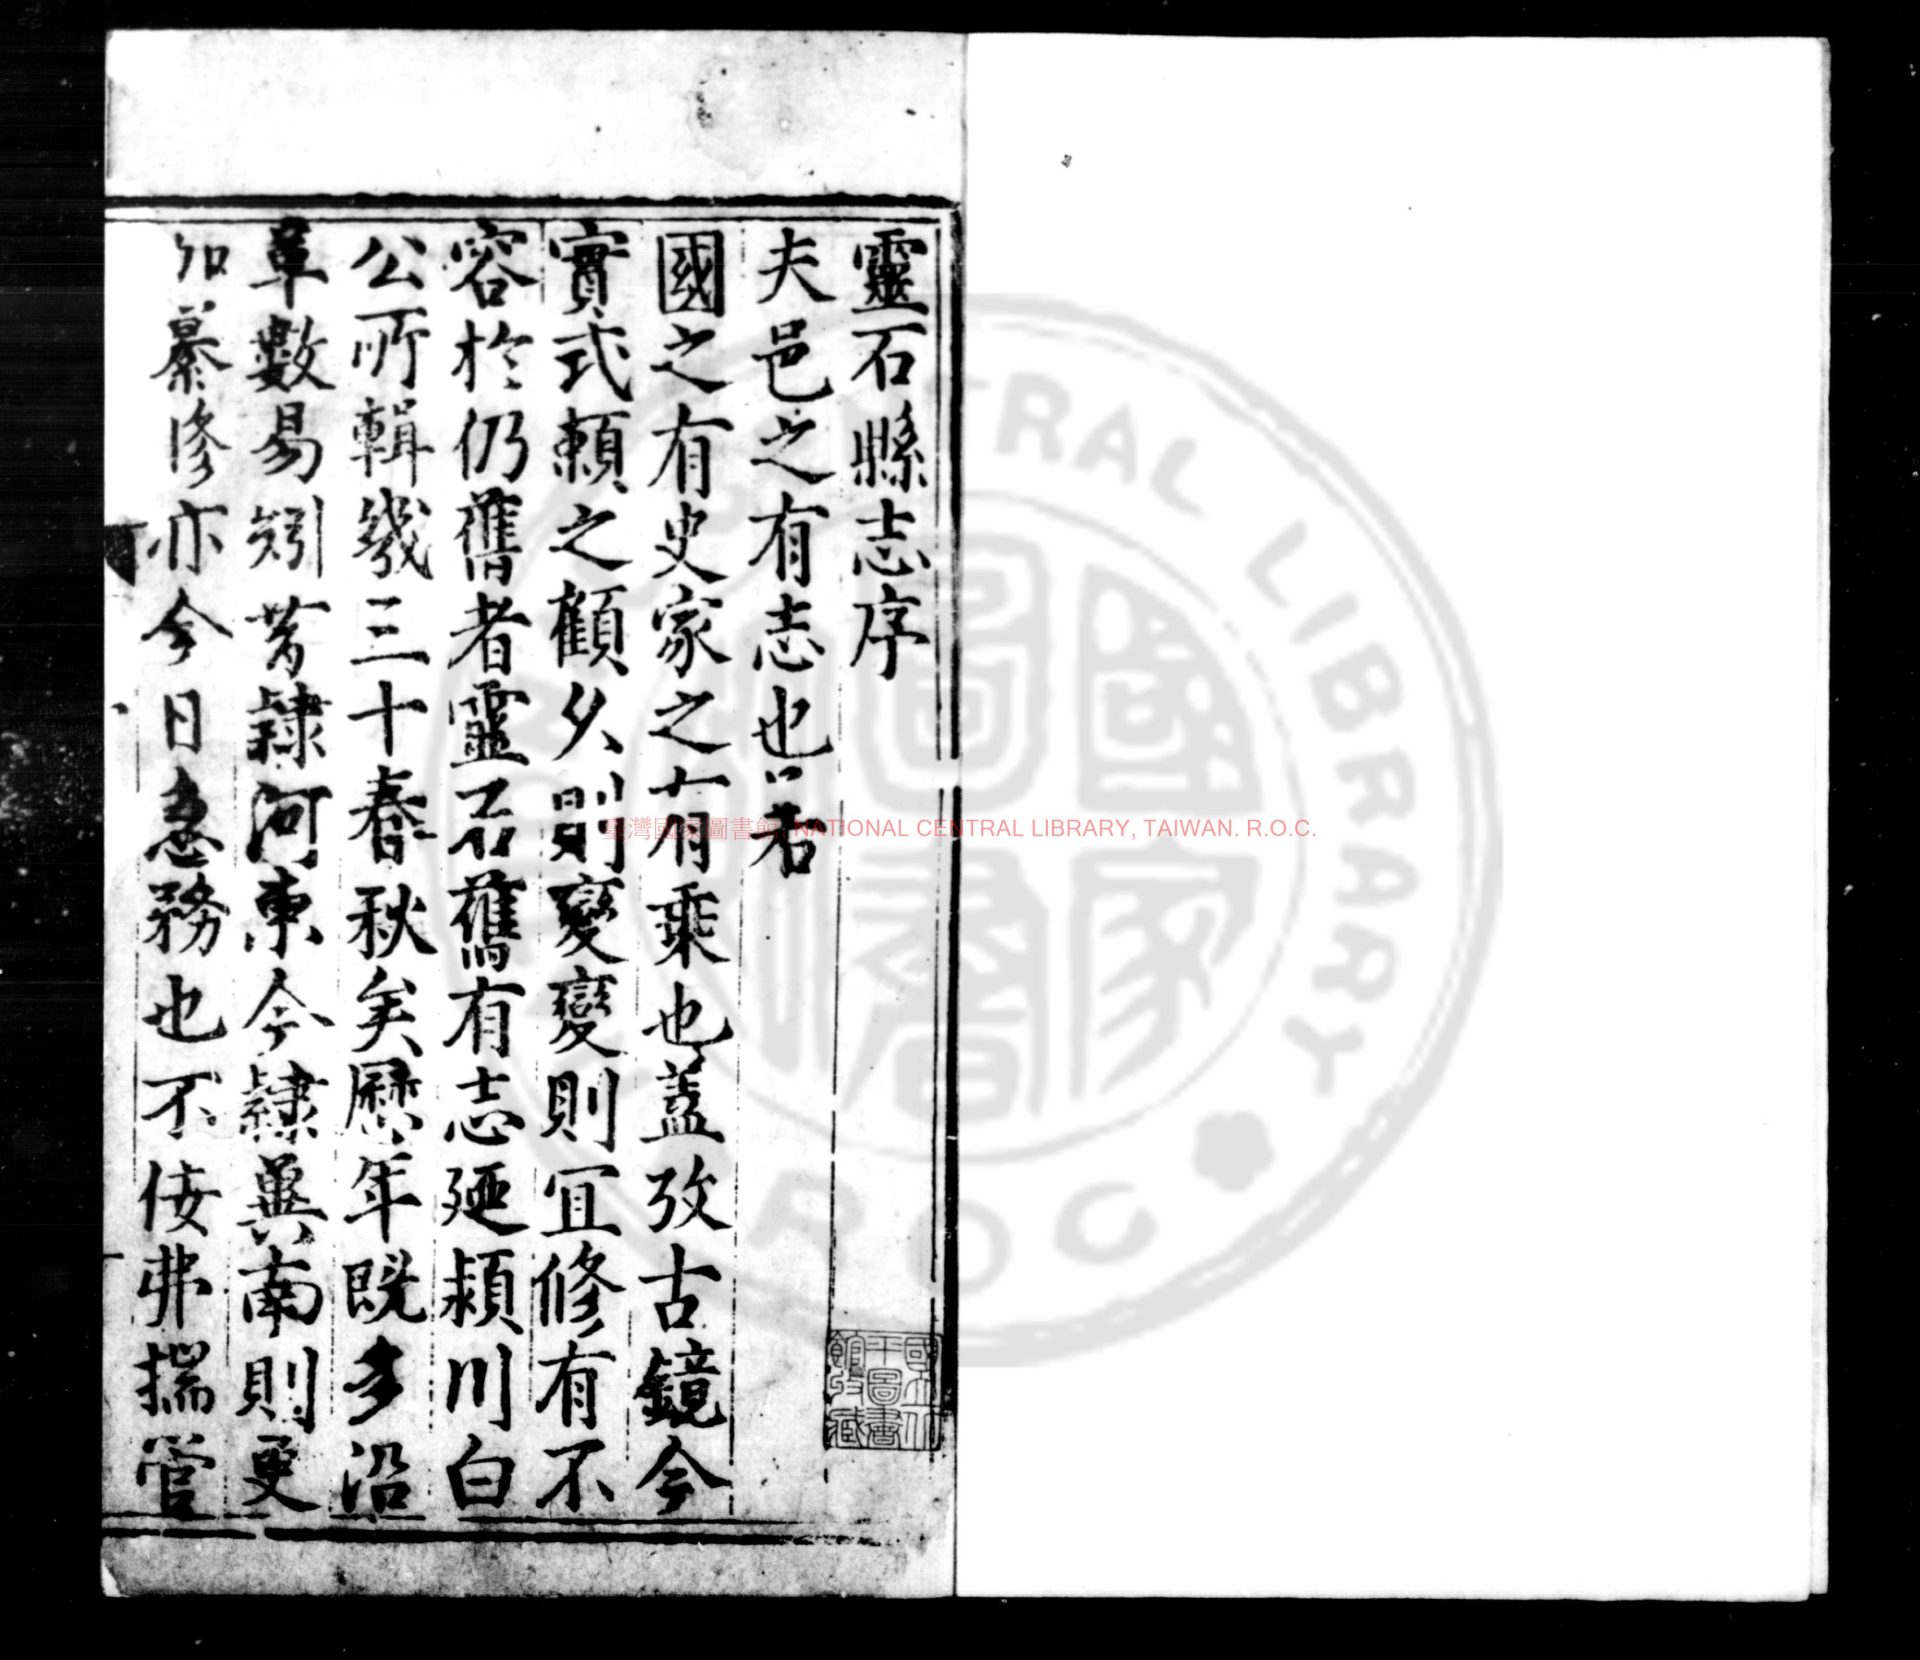 靈石縣志序
夫邑之有志也口若
國之有史家之有乘也蓋攷古鏡今
實式賴之顧久則變變則宜修有不
容於仍舊者靈石舊有志廼潁川白
公所輯幾三十春秋矣歷年既多沿
革數易矧昔隸河東今隸冀南則更
加纂修亦今日急務也不佞弗揣管
國立北
平圖書
館收藏
臺灣國家圖書館 NATIONAL CENTRAL LIBRARY, TAIWAN. R.O.C.
CENTRAL LIBRARY
R O C
國家
圖書